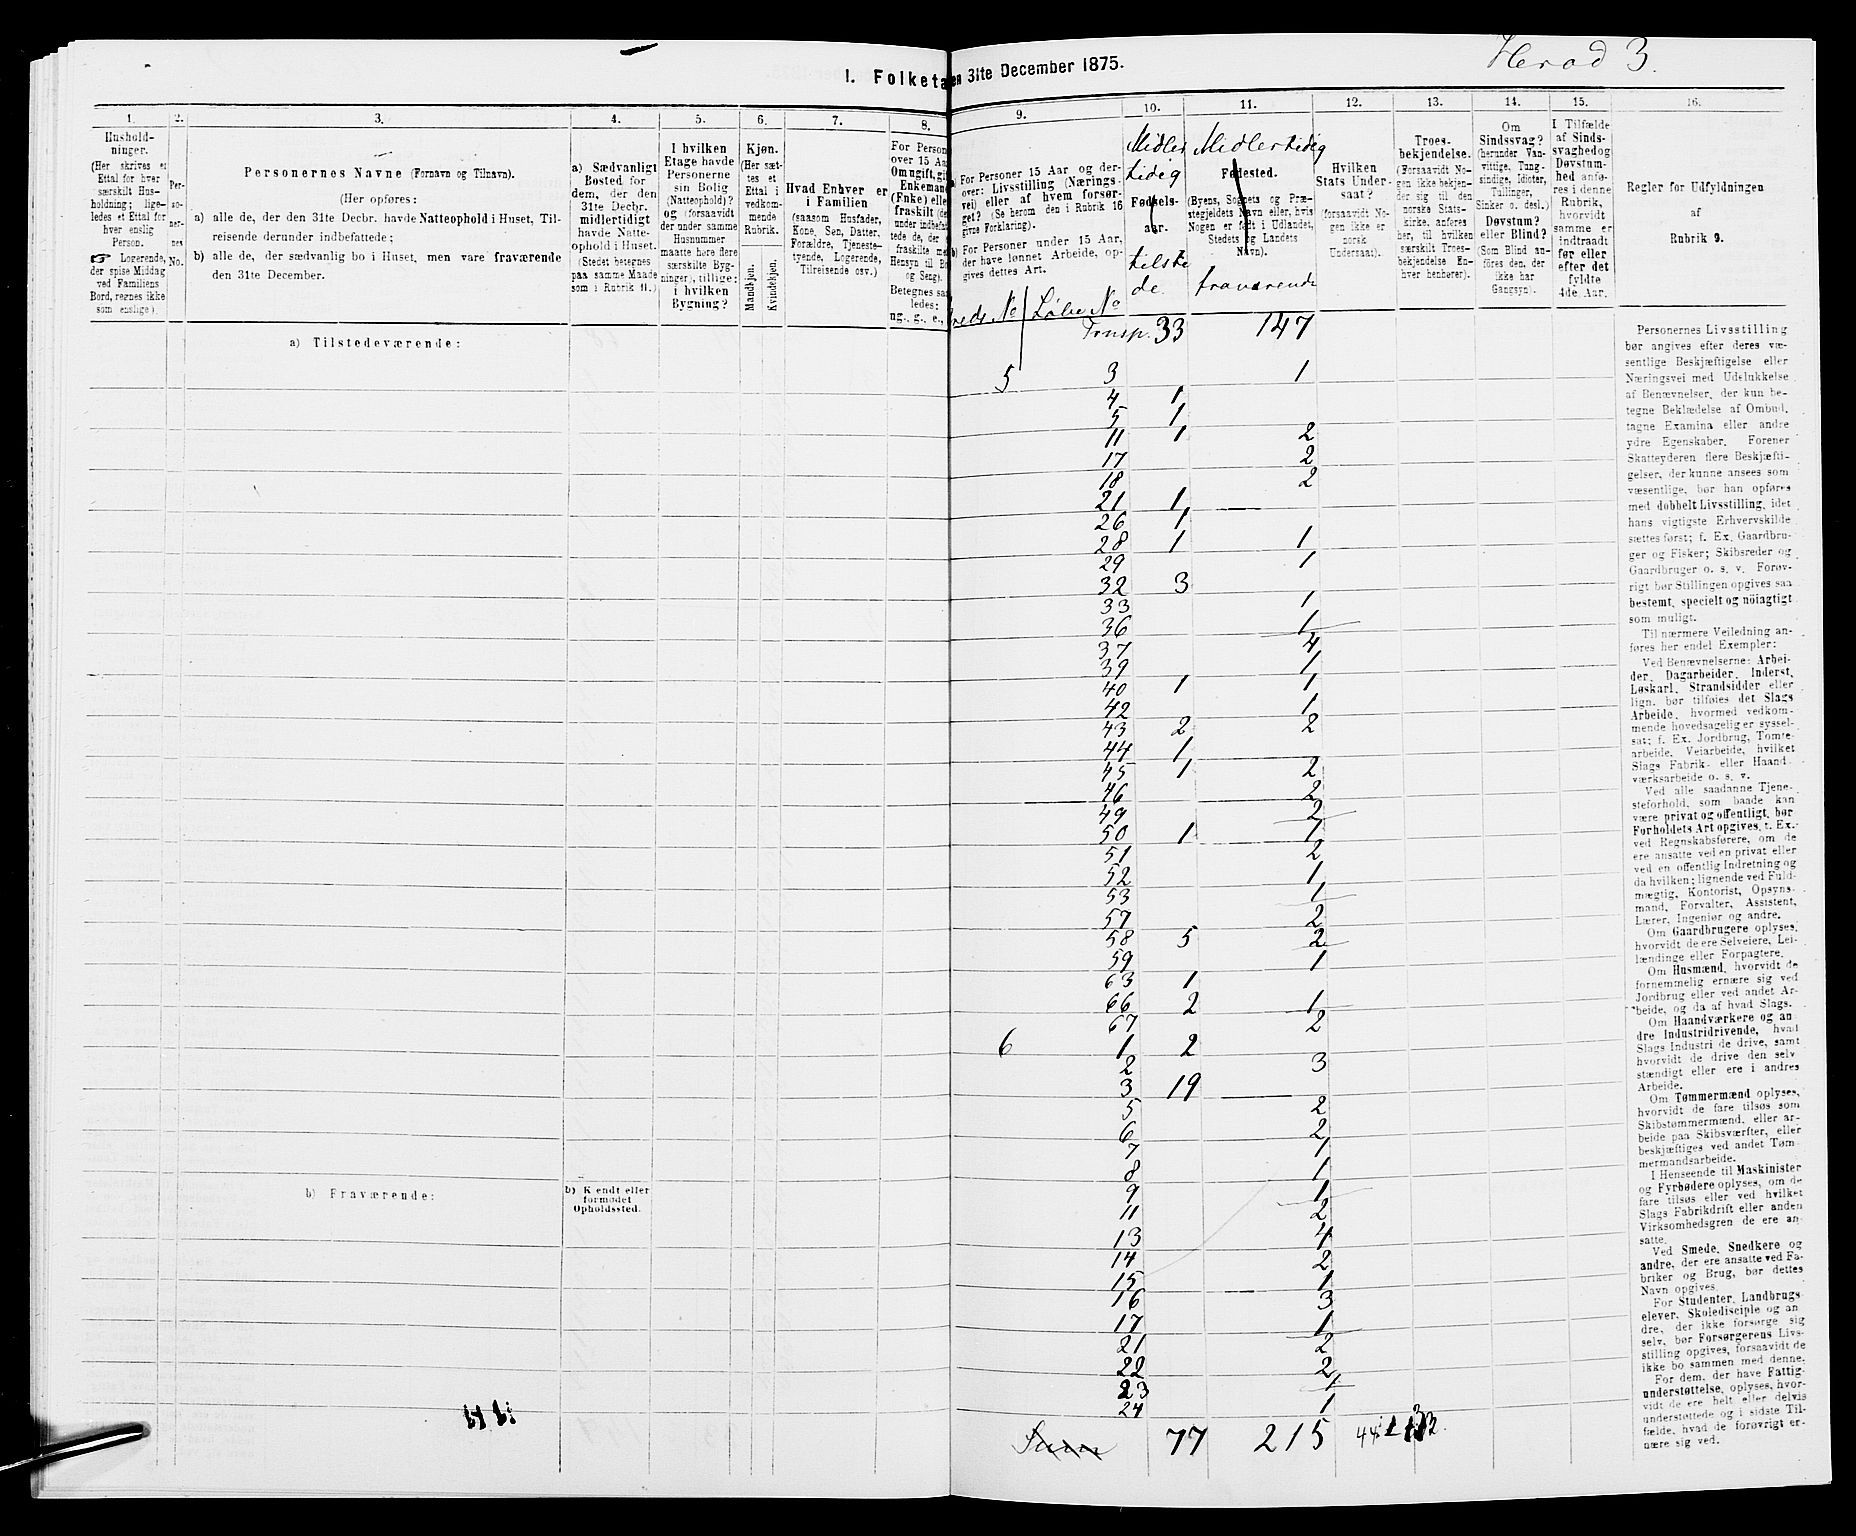 Herad 3.
1. Folketa en 31te December 1875.
1.
Hushold-
ninger.
(Her skrives et
Ettal for hver
særskilt Hus-
holdning; lige-
ledes et Ettal for
hver enslig
Person.
☞ Logerende,
der spise Middag
ved Familiens
Bord, regnes ikke
som enslige).
2.
Per-
so-
ner-
nes
No.
3.
Personernes Navne (Fornavn og Tilnavn).
(Her opføres:
a) alle de, der den 31te Decbr. havde Natteophold i Huset, Til-
reisende derunder indbefattede;
b) alle de, der sædvanlig bo i Huset, men vare fraværende
den 31te December.
4.
a) Sædvanligt
Bosted for
dem, der den
31te Decbr.
midlertidigt
havde Natte-
ophold i Huset.
(Stedet betegnes
paa samme Maade
som i Rubrik 11.)
5.
I hvilken
Etage havde
Personerne
sin Bolig
(Natteophold)?
og (forsaavidt
der under samme
Husnummer
maatte høre flere
særskilte Byg-
ninger), tillige:
i hvilken
Bygning?
6.
Kjøn.
(Her sæt-
tes et
Ettal i
vedkom-
mende
Rubrik.
Mandkjøn.
Kvindekjøn.
7.
Hvad Enhver er
i Familien
(saasom Husfader,
Kone, Søn, Datter,
Forældre, Tjeneste-
tyende, Logerende,
Tilreisende osv.)
8.
For Person
over 15 Aar
Om ugift, gif
Enkemand
(Enke) elle
fraskilt (de
under indbefat
tede de, der
fraskilte me
Hensyn til Bo
og Seng).
Betegnes saa
ledes:
ug., g., e.,
9.
a) For Personer 15 Aar og der-
over: Livsstilling (Nærings-
vei) eller af hvem forsør-
get? (Se herom den i Rubrik 16
givne Forklaring).
b) For Personer under 15 Aar,
der have lønnet Arbeide, op-
gives dettes Art.
reds No Løbe No
10.
Midler
tidig
Fødsels-
aar.
tilste
de.
11.
Midlertidig
Fødested.
(Byens, Sognets og Præ-
stegjeldets Navn eller, hvis
Nogen er født i Udlandet,
Stedets og Landets
Navn).
fraværende
12.
Hvilken
Stats Under-
saat?
(forsaavidt No-
gen ikke er
norsk
Undersaat).
13.
Troes-
bekjendelse.
(Forsaavidt No-
gen ikke bekjen-
der sig til den
norske Stats-
kirke, anføres
her, til hvilken
særskilt Troes-
bekjendelse En-
hver henhører).
14.
Om
Sindssvag?
(herunder Van-
vittige, Tung-
sindige, Idioter,
Tullinger,
Sinker o. desl.)
Døvstum?
eller Blind?
(Som Blind an-
føres den, der
ikke har
Gangsyn).
15.
I Tilfælde
af Sinds-
svaghed og
Døvstum-
hed anfø-
res i denne
Rubrik,
hvorvidt
samme er
indtraadt
før eller
efter det
fyldte
4de Aar.
16.
Regler for Udfyldningen
af
Rubrik 9.
a) Tilstedeværende:
Trnsp. 33 147
5 3 1
4 1
5 1
11 1 2
17 2
18 2
21 1
26 1
28 1 1
29 1
32 3
33 1
36 1
37 4
39 1
40 1 1
42 1
43 2 2
44 1
45 1 2
46 2
49 2
50 1 1
51 2
52 1
53 1
57 2
58 5 2
59 1
63 1
66 2 1
67 2
6 1 2
2 3
3 19
5 2
6 2
7 1
8 1
9 1
11 2
13 4
14 2
15 1
16 3
17 1
21 2
22 2
23 1
24 1
Sum 77 215
b) Fraværende:
b) Kjendt eller
formodet
Opholdssted.
Personernes Livsstilling
bør angives efter deres væ-
sentlige Beskjæftigelse eller
Næringsvei med Udelukkelse
af Benævnelser, der kun be-
tegne Beklædelse af Ombud,
tagne Examina eller andre
ydre Egenskaber. Forener
Skatteyderen flere Beskjæfti-
gelser, der kunne ansees som
væsentlige, bør han opføres
med dobbelt Livsstilling, idet
hans vigtigste Erhvervskilde
sættes først; f. Ex. Gaardbru-
ger og Fisker; Skibsreder og
Gaardbruger o. s. v. Forøv-
rigt bør Stillingen opgives saa
bestemt, specielt og nöiagtigt
som muligt.
Til nærmere Veiledning an-
føres her endel Exempler:
Ved Benævnelserne: Arbei-
der, Dagarbeider, Inderst,
Løskarl, Strandsidder eller
lign. bør tilføies det Slags
Arbeide, hvormed vedkom-
mende hovedsagelig er syssel-
sat; f. Ex. Jordbrug, Tomte-
arbeide, Veiarbeide, hvilket
Slags Fabrik- eller Haand-
værksarbeide o. s. v.
Ved alle saadanne Tjene-
steforhold, som baade kan
være privat og offentligt, bør
Forholdets Art opgives, t. Ex.
ved Regnskabsførere, om de
ere ansatte ved en privat eller
ved en offentlig Indretning og
da hvilken; lignende ved Fuld-
mægtig, Kontorist, Opsyns-
mand, Forvalter, Assistent,
Lærer, Ingeniør og andre.
Om Gaardbrugere oplyses,
hvorvidt de ere Selveiere, Lei-
lændinge eller Forpagtere.
Om Husmænd, hvorvidt de
fornemmelig ernære sig ved
Jordbrug eller ved andet Ar-
beide, og da af hvad Slags.
Om Haandværkere og an-
dre Industridrivende, hvad
Slags Industri de drive, samt
hvorvidt de drive den selv
stændigt eller ere i andres
Arbeide.
Om Tømmermænd oplyses,
hvorvidt de fare tilsøs som
Skibstømmermænd, eller ar-
beide paa Skibsværfter, eller
beskjæftiges ved andet Tøm-
mermandsarbeide.
I Henseende til Maskinister
og Fyrbødere oplyses, om de
fare tilsøs eller ved hvilket
Slags Fabrikdrift eller anden
Virksomhedsgren de ere an-
satte.
Ved Smede, Snedkere og
andre, der ere ansatte ved Fa-
briker og Brug, bør dettes
Navn opgives.
For Studenter, Landbrugs-
elever, Skoledisciple og an-
dre, der ikke forsørge sig
selv, bør Forsørgerens Livs-
stilling opgives, forsaavidt de
ikke bo sammen med denne.
For dem, der have Fattig-
understøttelse, oplyses, hvor-
vidt de ere helt eller delvis
understøttede og i sidste Til-
fælde, hvad de forøvrigt er-
nære sig ved.